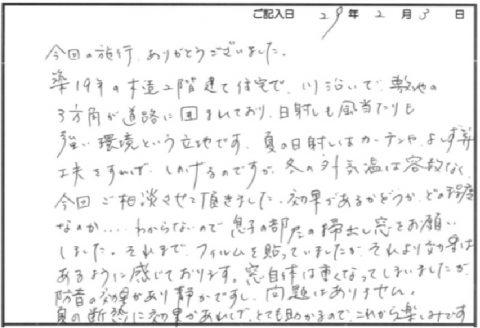 ご記入日 29年 2月 3日
今回の施行、ありがとうございました。
築19年の木造2階建て住宅で、川沿いで、敷地の
3方角が道路に囲まれており、日射しも風当たりも
強い環境という立地です。夏の日射しはカーテンや、よしず等
工夫をすれば、しのげるのですが、冬の外気温は容赦なく
今回ご相談させて頂きました。効果があるかどうか、どの程度
なのか・・・・わからないので息子の部屋の掃出し窓をお願い
しました。それまで、フィルムを貼っていましたが、それより効果は
あるように感じております。窓自体は重くなってしまいましたが、
防音の効果があり静かですし、問題はありません。
夏の断熱に効果があれば、とても助かるので、これから楽しみです